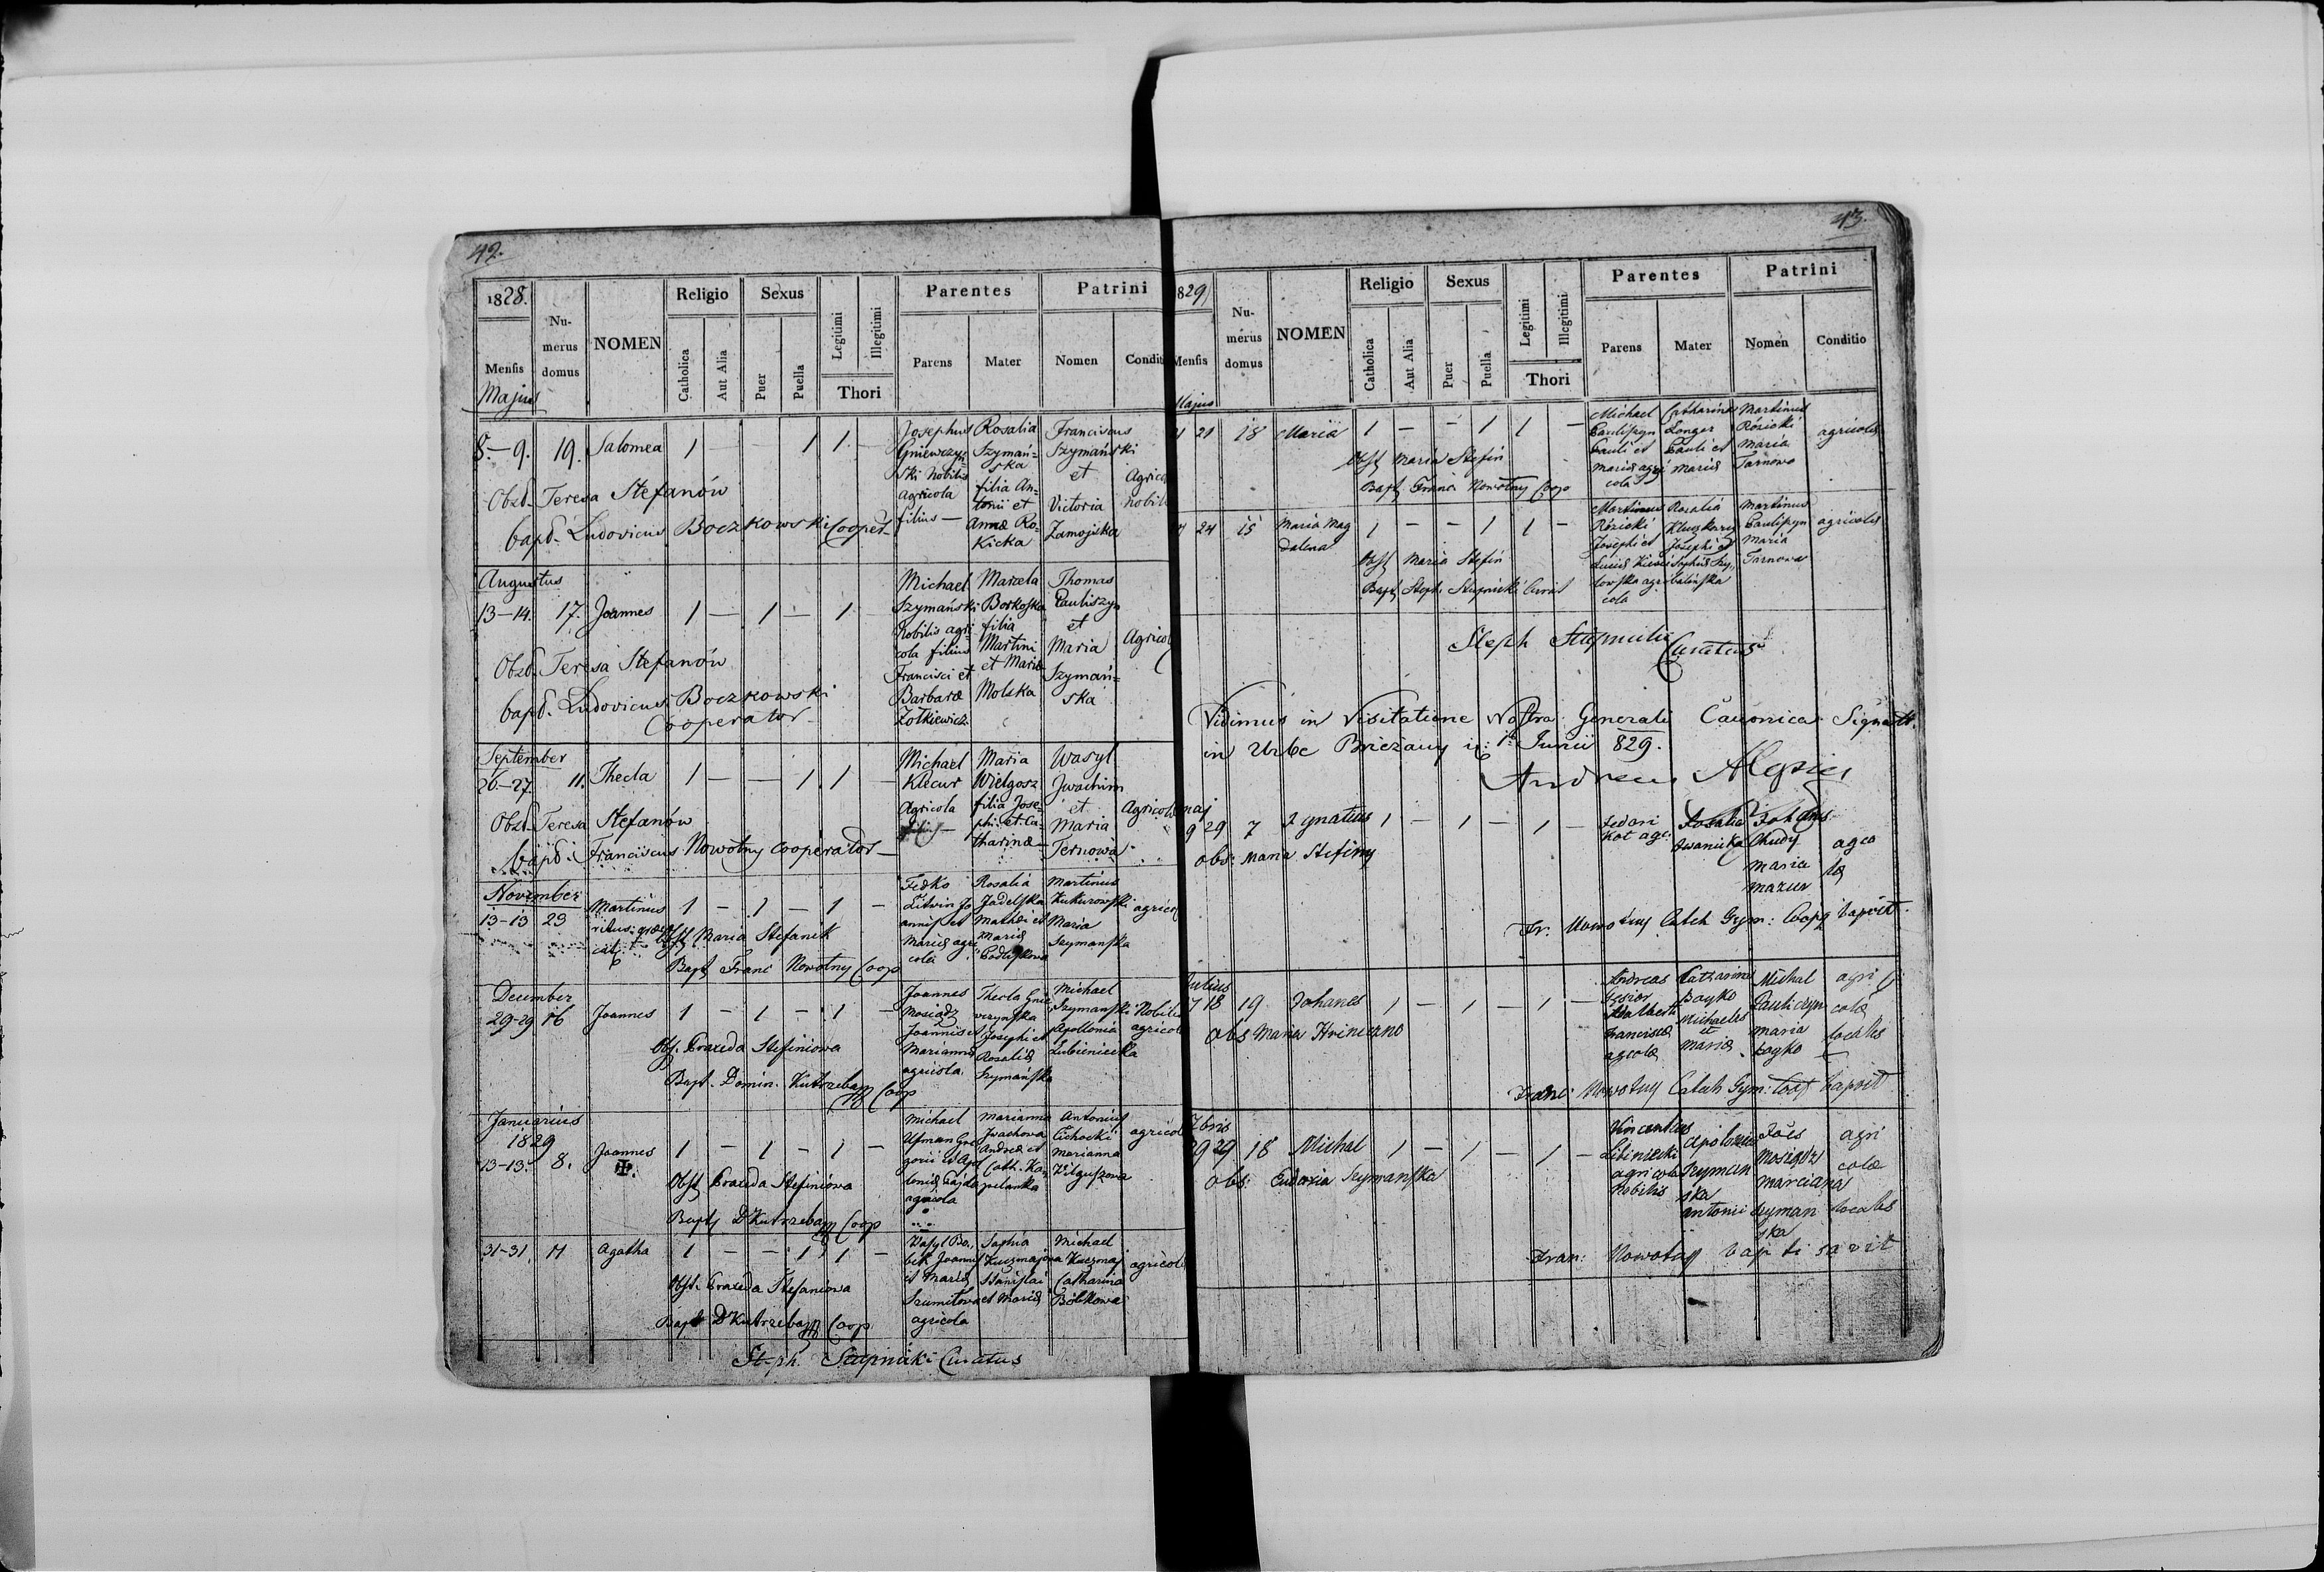 42.
1828.
Numerus domus
NOMEN
Religio
Sexus
Legitimi
Illegitimi
Thori
Parentes
Patrini
Mensis
Catholica
Aut Alia
Puer
Puella
Parens
Mater
Nomen
Conditio
Majus
8.–9. 19. Salomea 1 — 1 1. —
Josephus Gniewczyń
ski Nobilis
Agricola
filius —
Rosalia
Szymań=
ska
filia An=
tonii et
Annæ Ro=
kicka
Franciscus
Szymański
et
Victoria
Zamojska
Agrico
nobil
Obst. Teresa Stefanów
bapt. Ludovicus Boczkowski Cooper
Augustus
13–14. 17. Joannes 1 — 1 — 1. —
Michael
Szymański
Nobilis agri
cola filius
Francisci et
Barbaræ
Zołkiewicz
Marcela
Borkoska
filia
Martini
et Mariæ
Molska
Thomas
Pauliszyn
et
Maria
Szymań=
ska
Agricol
Obst. Teresa Stefanów
bapt. Ludovicus Boczkowski
Cooperator
September
26–27. 11. Thecla 1 — — 1. 1. —
Michael
Klecur
Agricola
Maria
Wielgosz
filia Jose=
phi et Ca=
tharinæ —
Wasyl
Jwachim
et
Maria
Ternowa
Agricolæ
Obst. Teresa Stefanów
bapt. Franciscus Nowotny Cooperator —
November
13–13 23 Martinus 1 – 1 – 1 –
ritus græc
cat.
Fedko
Litwin Jo
annis et
Mariæ agri
cola
Rosalia
Jadelska
Mathei et
Mariæ
Martinus
Kukurowski
Maria
Szymanska
agrico
Obst Maria Stefanik
Bapt Franc Nowotny Coop
December
29–29 16 Joannes 1 – 1 – 1 –
Joannes
Mosiądz
Joannis et
Mariannæ
agricola.
Thecla Gnie
wczynska
Josephi et
Rosaliæ
Szymańska
Michael
Szymanski
Apollonia
Lubieniecka
Nobiles
agricol
Obst. Praxeda Stefiniowa
Bapt. Domin. Kutrzeba Coop
Januarius
1829
13–13. 8. Joannes 1 – 1 – 1 –
Michael
Marianna
Jwachowa
Andreæ et
Cath.
Antonius
Cichocki
Marianna
agricol
agricola
Obst Praxeda Stefiniowa
Bapt D Kutrzeba Coop
31–31. 11 Agatha 1 – – 1 1 –
Wasyl Bo.
bek Joannis
et Mariæ
Szumiłowa
agricola
Sophia
Kuczmajowa
Stanislai
et Mariæ
Michael
Kuczmaj
Catharina
Bobkowa
agricol
Obst. Praxeda Stefaniowa
Bapt D Kutrzeba Coop
Steph. Stupnicki Curatus
43.
829
Mensis
Numerus domus
NOMEN
Religio
Sexus
Legitimi
Illegitimi
Thori
Parentes
Patrini
Catholica
Aut Alia
Puer
Puella
Parens
Mater
Nomen
Conditio
Majus
21 21 18 Maria 1 – – 1 1 –
Michael
Pauliszyn
Pauli et
Mariæ agri
cola
Catharina
Longer
Pauli et
Mariæ
Martinus
Rózicki
Maria
Tarnowa
agricolæ
Obst Maria Stefin
Bapt Franc Nowotny Coop
24 15 Maria Mag
dalena 1 – – 1 1 –
Martinus
Rózicki
Josephi et
Rosalia
Josephi et
Martinus
Pauliszyn
Maria
Tarnowa
agricolæ
cola
Obst Maria Stefin
Bapt Steph Stupnicki Curat
Steph Stupnicki Curatus
Vidimus in Visitatione Nostra Generali Canonica
in Urbe Brieżany 1ª Junii 829.
Maj
29 7 Ignatius 1 – 1 – 1 –
Fedori
Kot agr.
Rosalia
Iwanicka
Johans
Chudy
Maria
Mazur
agco
læ
obs: Maria Stefiny
Fr. Nowotny Catch Gym: Coop bapsit
Julius
18 19 Johanes 1 – 1 – 1 –
Andreas
Gesior
Adalberti
Franciscæ
agcola
Catharina
Boyko
Michaelis
et
Mariæ
Michal
Pauliczyn
Maria
Boyko
agri
colæ
locales
obs Maria Hrinczno
Franc: Nowotny Catech Gym: Coop bapsit
7bris
29 29 18 Michal 1 – 1 – 1 –
Vincentius
Libiniecki
agricola
Nobilis
Apolonia
Szyman
ska
Antonii
Joës
Mosiądz
Marciana
Szyman
ska
agri
colæ
locales
obs: Eudoxia Szymanska
Fran: Nowotny baptisavit